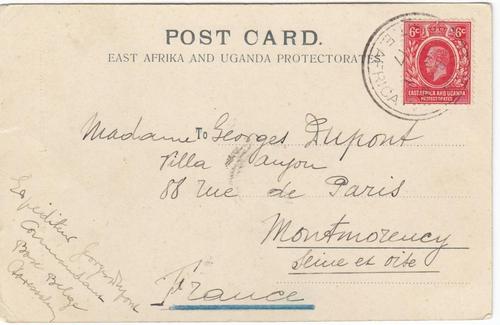 POST CARD.
EAST AFRIKA AND UGANDA PROTECTORATES
6c 6c
EAST AFRICA AND UGANDA
PROTECTORATES
AFRICA
To
Madame Georges Dupont
Villa Anjou
88 rue de Paris
Montmorency
Seine et Oise
France
Expéditeur Georges Dupont
Commandant
Base Belge